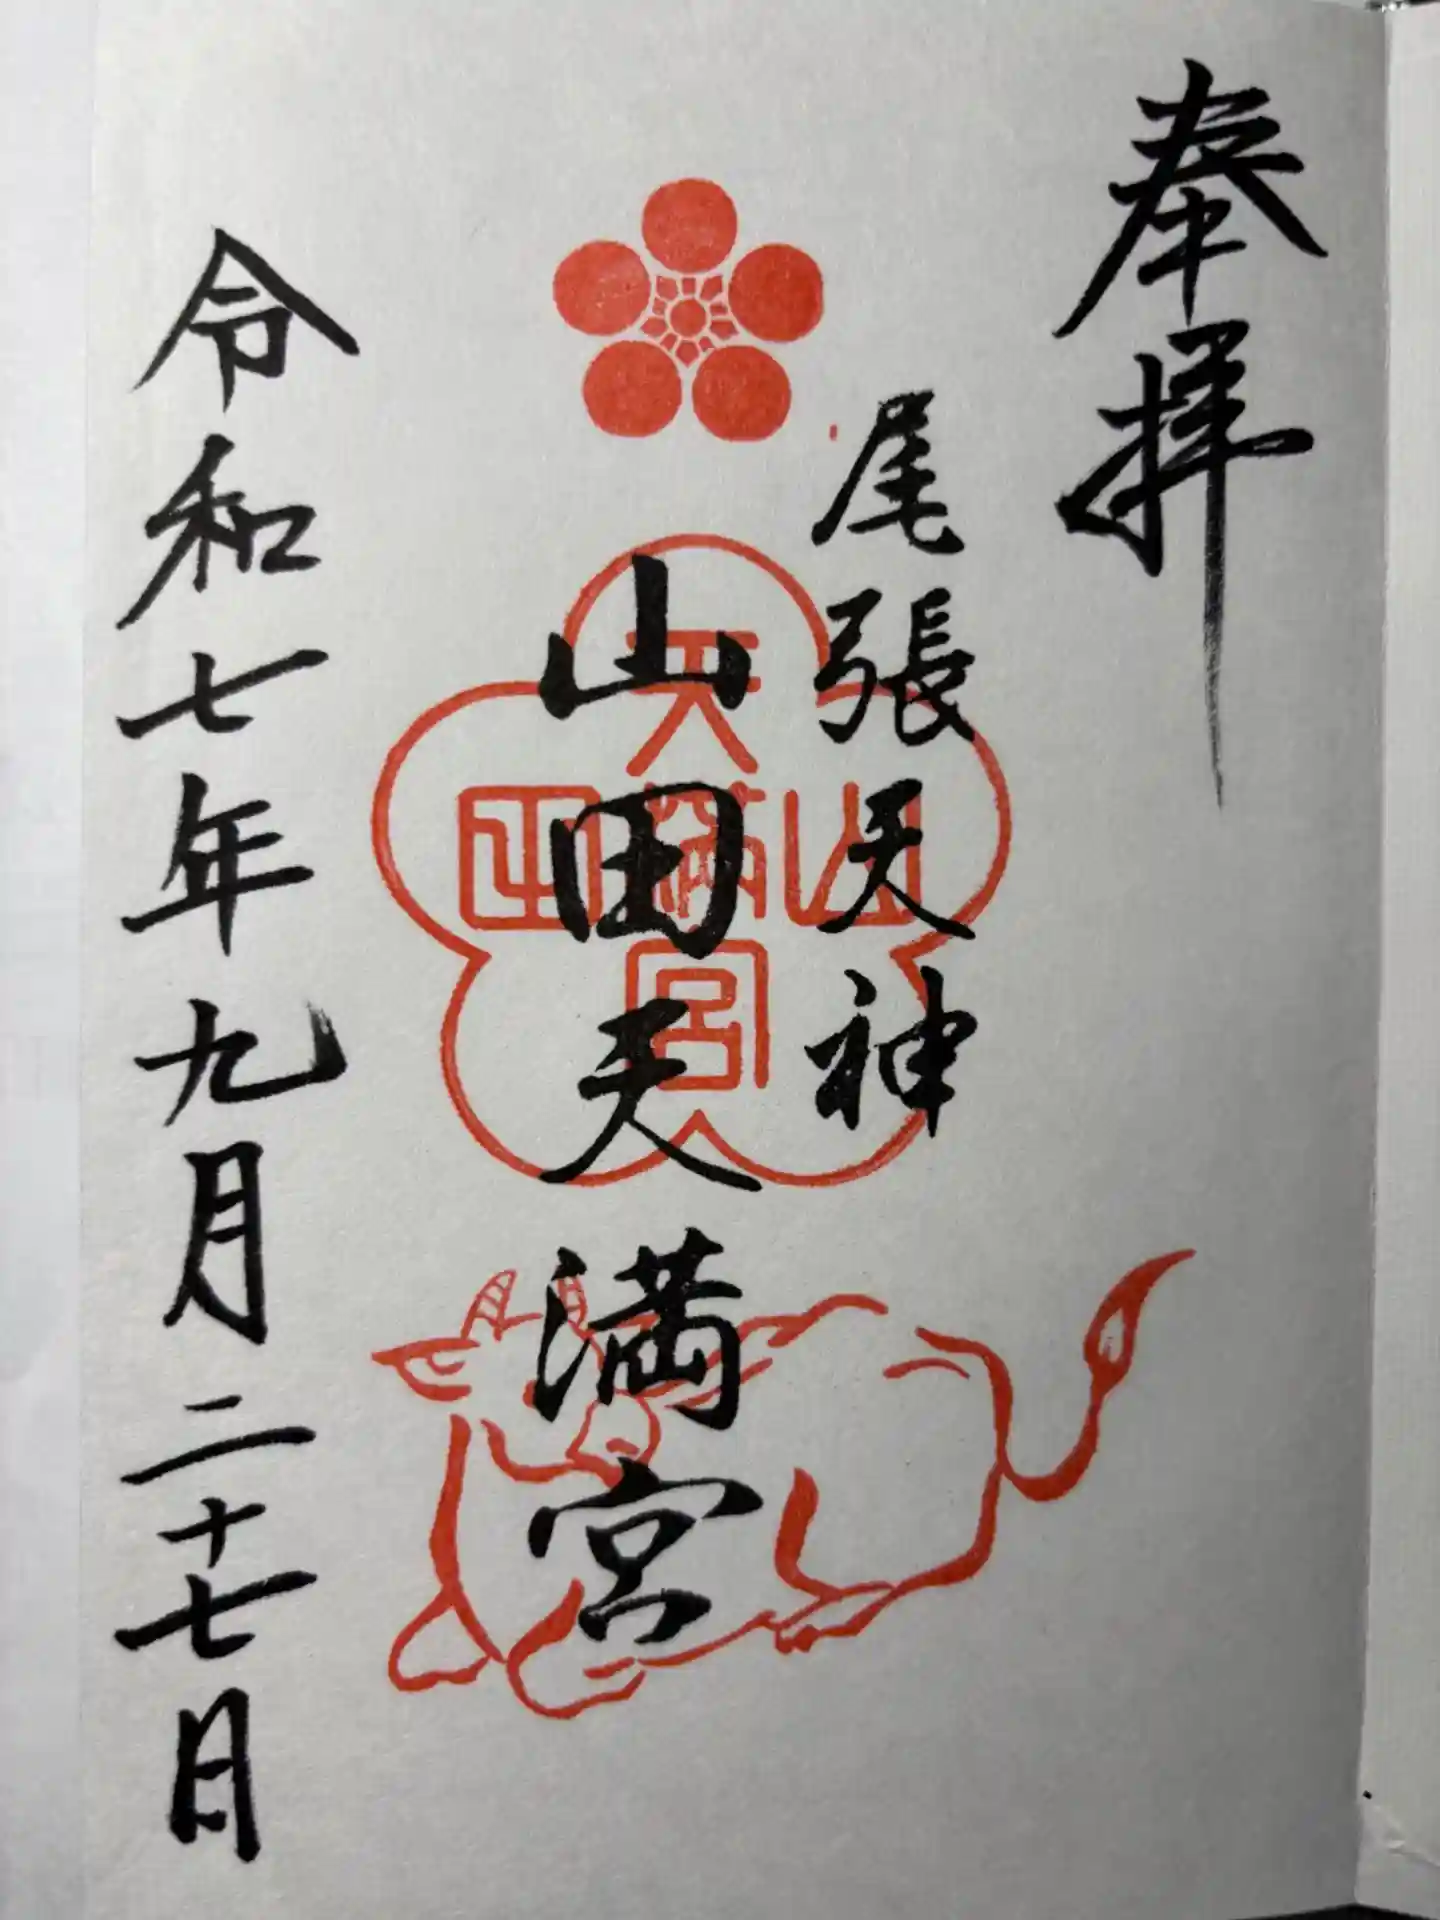 奉拝
尾張天神
山田天満宮
令和七年九月二十七日
天
山満田
宮